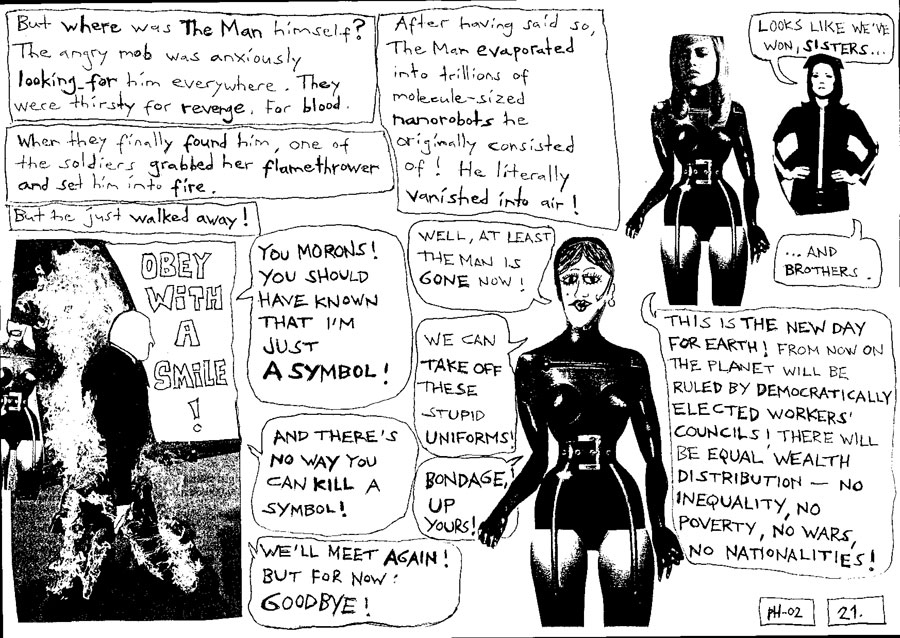 But where was The Man himself?
The angry mob was anxiously
looking for him everywhere. They
were thirsty for revenge. For blood.
When they finally found him, one of
the soldiers grabbed her flamethrower
and set him into fire.
But he just walked away!
OBEY
WITH
A
SMILE
!
YOU MORONS!
YOU SHOULD
HAVE KNOWN
THAT I'M
JUST
A SYMBOL!
AND THERE'S
NO WAY YOU
CAN KILL A
SYMBOL!
WE'LL MEET AGAIN!
BUT FOR NOW:
GOODBYE!
After having said so,
The Man evaporated
into trillions of
molecule-sized
nanorobots he
originally consisted
of! He literally
vanished into air!
WELL, AT LEAST
THE MAN IS
GONE NOW!
WE CAN
TAKE OFF
THESE
STUPID
UNIFORMS!
BONDAGE,
UP
YOURS!
LOOKS LIKE WE'VE
WON, SISTERS...
...AND
BROTHERS.
THIS IS THE NEW DAY
FOR EARTH! FROM NOW ON
THE PLANET WILL BE
RULED BY DEMOCRATICALLY
ELECTED WORKERS'
COUNCILS! THERE WILL
BE EQUAL WEALTH
DISTRIBUTION — NO
INEQUALITY, NO
POVERTY, NO WARS,
NO NATIONALITIES!
PH-02
21.